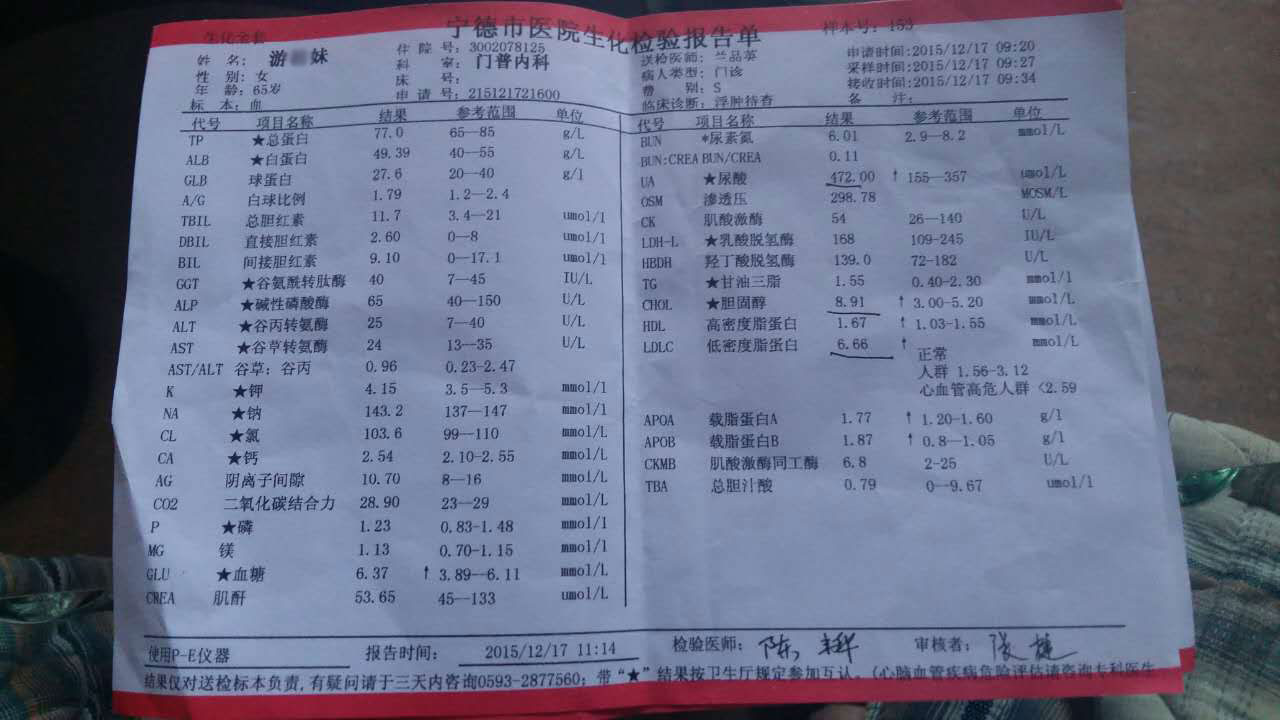 宁德市医院生化检验报告单
生化全套 样本号：153
姓 名：游 妹 住 院 号：3002078125 送检医师：兰品英 申请时间：2015/12/17 09:20
性 别：女 科 室：门普内科 病人类型：门诊 采样时间：2015/12/17 09:27
年 龄：65岁 床 号： 费 别：S 接收时间：2015/12/17 09:34
标 本：血 申 请 号：215121721600 临床诊断：浮肿待查 备 注：
代号 项目名称 结果 参考范围 单位
TP ★总蛋白 77.0 65--85 g/L
ALB ★白蛋白 49.39 40--55 g/L
GLB 球蛋白 27.6 20--40 g/l
A/G 白球比例 1.79 1.2--2.4
TBIL 总胆红素 11.7 3.4--21 umol/l
DBIL 直接胆红素 2.60 0--8 umol/l
BIL 间接胆红素 9.10 0--17.1 umol/l
GGT ★谷氨酰转肽酶 40 7--45 IU/L
ALP ★碱性磷酸酶 65 40--150 U/L
ALT ★谷丙转氨酶 25 7--40 U/L
AST ★谷草转氨酶 24 13--35 U/L
AST/ALT 谷草：谷丙 0.96 0.23-2.47
K ★钾 4.15 3.5--5.3 mmol/l
NA ★钠 143.2 137--147 mmol/L
CL ★氯 103.6 99--110 mmol/L
CA ★钙 2.54 2.10-2.55 mmol/L
AG 阴离子间隙 10.70 8--16 mmol/L
CO2 二氧化碳结合力 28.90 23--29 mmol/L
P ★磷 1.23 0.83-1.48 mmol/l
MG 镁 1.13 0.70-1.15 mmol/l
GLU ★血糖 6.37 ↑ 3.89--6.11 mmol/L
CREA 肌酐 53.65 45--133 umol/L
代号 项目名称 结果 参考范围 单位
BUN *尿素氮 6.01 2.9--8.2 mmol/L
BUN:CREA BUN/CREA 0.11
UA ★尿酸 472.00 ↑ 155--357 umol/L
OSM 渗透压 298.78 MOSM/L
CK 肌酸激酶 54 26--140 U/L
LDH-L ★乳酸脱氢酶 168 109-245 IU/L
HBDH 羟丁酸脱氢酶 139.0 72-182 U/L
TG ★甘油三脂 1.55 0.40-2.30 mmol/l
CHOL ★胆固醇 8.91 ↑ 3.00-5.20 mmol/L
HDL 高密度脂蛋白 1.67 ↑ 1.03-1.55 mmol/L
LDLC 低密度脂蛋白 6.66 ↑ mmol/L
正常
人群 1.56-3.12
心血管高危人群 <2.59
APOA 载脂蛋白A 1.77 ↑ 1.20-1.60 g/l
APOB 载脂蛋白B 1.87 ↑ 0.8--1.05 g/l
CKMB 肌酸激酶同工酶 6.8 2-25 U/L
TBA 总胆汁酸 0.79 0--9.67 umol/l
使用P-E仪器 报告时间： 2015/12/17 11:14 检验医师： 审核者：
结果仅对送检标本负责,有疑问请于三天内咨询0593-2877560; 带“★”结果按卫生厅规定参加互认。(心脑血管疾病危险评估请咨询专科医生